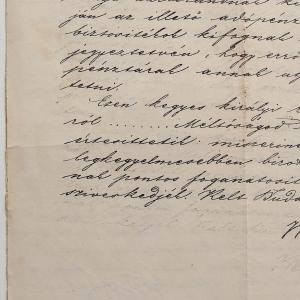 ján az illető adópénz
biztositékok kifognak
jegyeztetvén, hogy erről
pénztárak annak u
tetni.
Ezen kegyes királyi
ról ......... Méltóságod
értesittetik miszerint
legkegyelmesebben bizod
nak pontos foganatosit
sziveskedjék. Kelt Buda